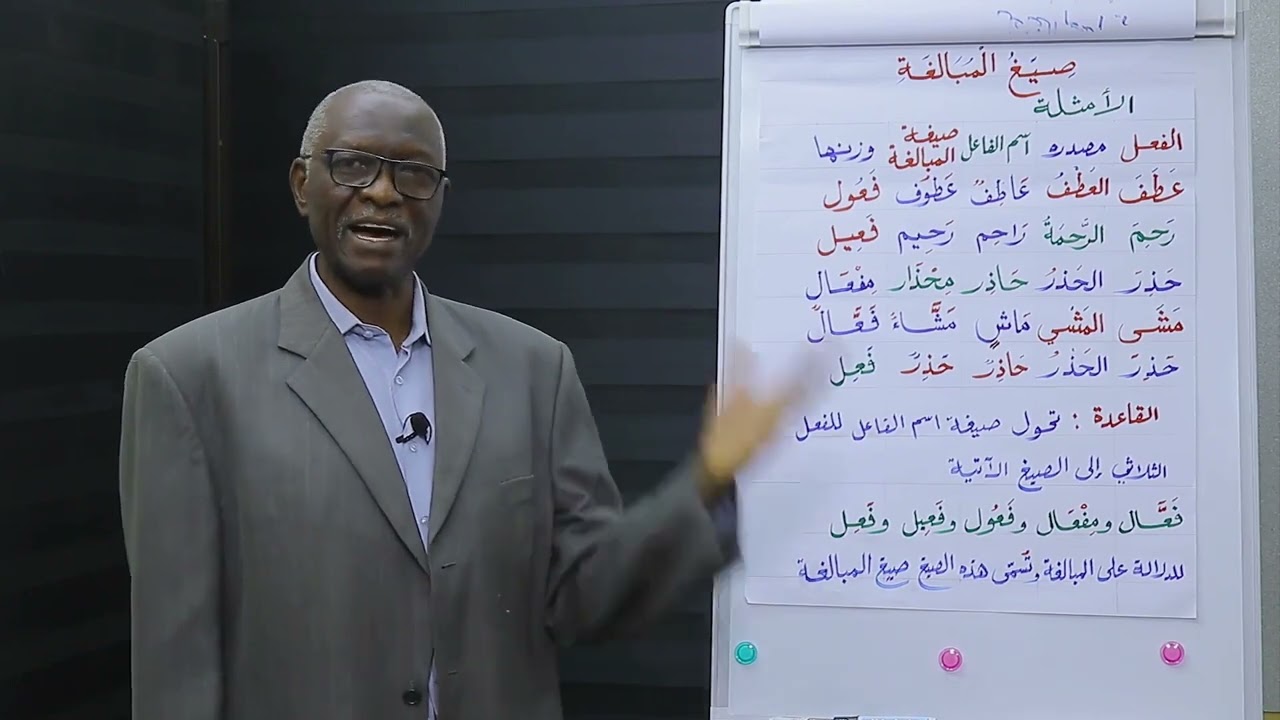 صِيَغُ الْمُبَالَغَةِ
الأمثلة
الفعل مصدره اسم الفاعل صيغة المبالغة وزنها
عَطَفَ العَطْفُ عَاطِفٌ عَطَوف فَعُول
رَحِمَ الرَّحمَةُ رَاحِم رَحِيم فَعِيل
حَذِرَ الحَذرُ حَاذِر مِحْذَار مِفْعَال
مَشَى المَشْي مَاشٍ مَشَّاءٌ فَعَّالٌ
حَذِرَ الحَذْرُ حَاذِرٌ حَذِرٌ فَعِل
القاعدة : تحول صيغة اسم الفاعل للفعل
الثلاثي إلى الصيغ الآتية
فَعَّال ومِفْعَال وفَعُول وفَعِيل وفَعِل
للدلالة على المبالغة وتُسَمَّى هذه الصيغ صيغ المبالغة